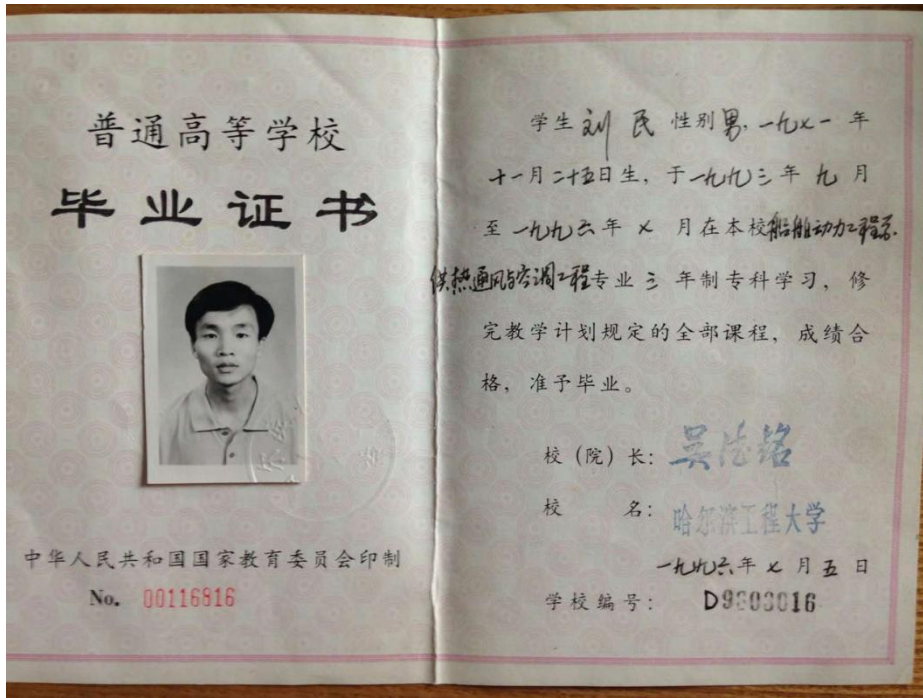 普通高等学校
毕业证书
中华人民共和国国家教育委员会印制
No. 00116816
学生 刘民 性别男,一九七一年
十一月二十五日生,于一九九三年九月
至一九九六年七月在本校船舶动力工程系
供热通风与空调工程专业三年制专科学习,修
完教学计划规定的全部课程,成绩合
格,准予毕业。
校(院)长:吴德铭
校名:哈尔滨工程大学
一九九六年七月五日
学校编号: